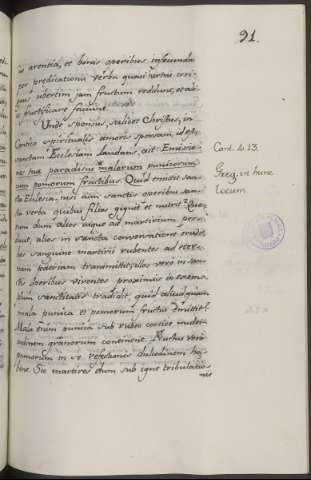 91.
arentia, et bonis operibus infecunda
per predicationis verba quasi
ubertim jam fructum reddunt, et
fructificare faciunt.
Unde sponsus, scilicet Christus, in
Cantico spiritualis amoris sponsam, id est,
sanctam Ecclesiam laudans, ait: Emissio-
nes tua paradisus malorum punicorum
cum pomorum fructibus. Quid emittit san-
cta Eclesia, nisi sanctis operibus
verba quibus filios gignit et nutrit?
dum alios usque ad martirium
alios in sancta conversatione
sanguine martirii rubentes ad
patriam transmittit, illos vero in
operibus viventes proximis in
sanctitatis tradidit, quid aliud quam
mala punica et pomorum fructus emittit?
Mala enim punica sub rubeo cortice multi-
tudinem granorum continent. Fructus vero
pomorum in se dulcedinem
Sic martires dum sub igne tribulatio-
nis
Cant. 4. 13.
Greg. in hunc
locum.